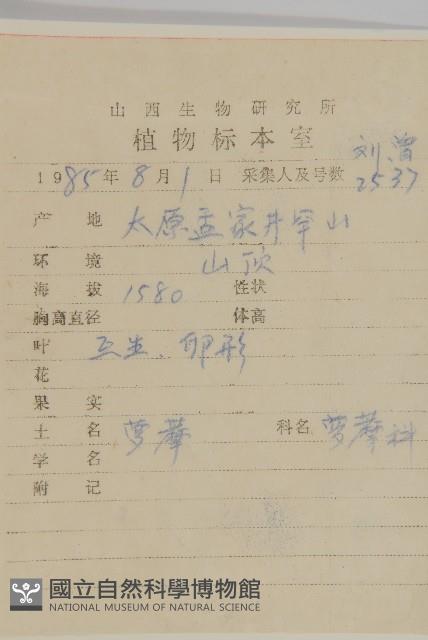 山西生物研究所
植物标本室
刘、曾
1985年8月1日 采集人及号数 2537
产地 太原孟家井罕山
环境 山顶
海拔 1580 性状
胸高直径 体高
叶 互生、卵形
花
果实
土名 萝藦 科名 萝藦科
学名
附记
國立自然科學博物館
NATIONAL MUSEUM OF NATURAL SCIENCE